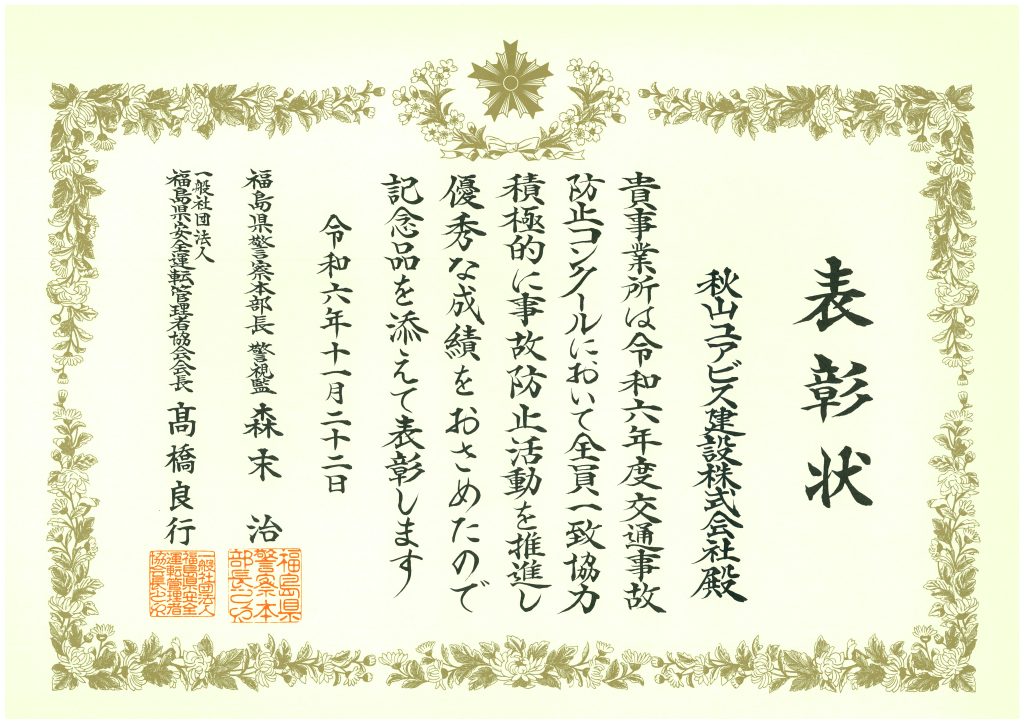 表彰状
秋山ユアビス建設株式会社殿
貴事業所は令和六年度交通事故
防止コンクールにおいて全員一致協力
積極的に事故防止活動を推進し
優秀な成績をおさめたので
記念品を添えて表彰します
令和六年十一月二十二日
福島県警察本部長 警視監 森末 治
一般社団法人
福島県安全運転管理者協会会長 髙橋良行
福島県
警察本
部長之印
一般社団法人
福島県安全
運転管理者
協会長之印